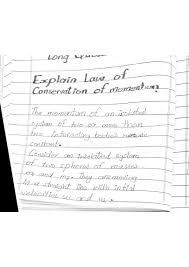 Long
Explain Law of
Conservation of momentum?
The momentum of an isolated
system of two or more than
two interacting bodies remains
constant.
Consider an isolated system
of two spheres of masses
m₁ and m₂. They are moving
in a straight line with initial
velocities u₁ and u₂.